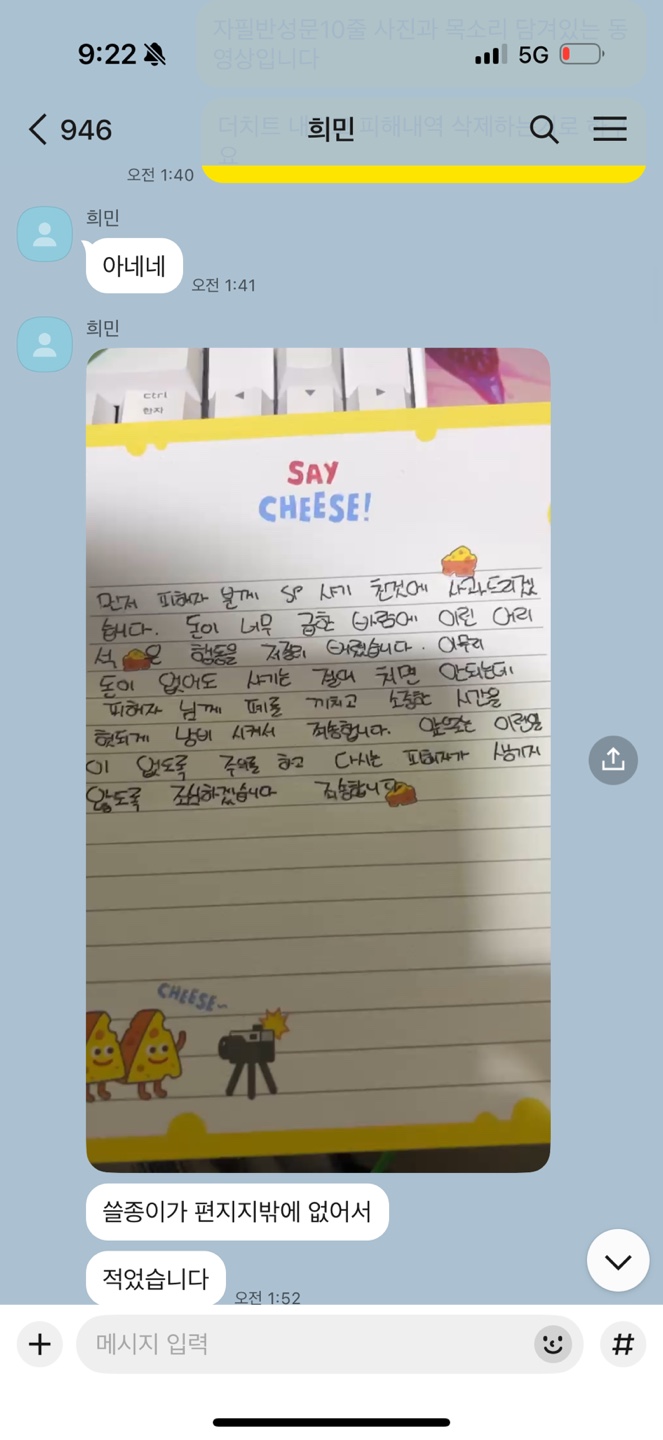 자필반성문10줄 사진과 목소리 담겨있는 동
영상입니다
9:22
5G
더치트 내 피해내역 삭제하는 로
요
946
희민
오전 1:40
희민
아네네
오전 1:41
희민
ctrl
한자
SAY
CHEESE!
먼저 피해자 분께 SP 사기 친것에 사과드리겠
습니다. 돈이 너무 급한 바람에 이런 어리
석은 행동을 저질러 버렸습니다. 아무리
돈이 없어도 사기는 절대 치면 안되는데
피해자 님께 폐를 끼치고 소중한 시간을
헛되게 낭비 시켜서 죄송합니다. 앞으로는 이런일
이 없도록 주의를 하고 다시는 피해자가 생기지
않도록 조심하겠습니다 죄송합니다
CHEESE~
쓸종이가 편지지밖에 없어서
적었습니다
오전 1:52
메시지 입력